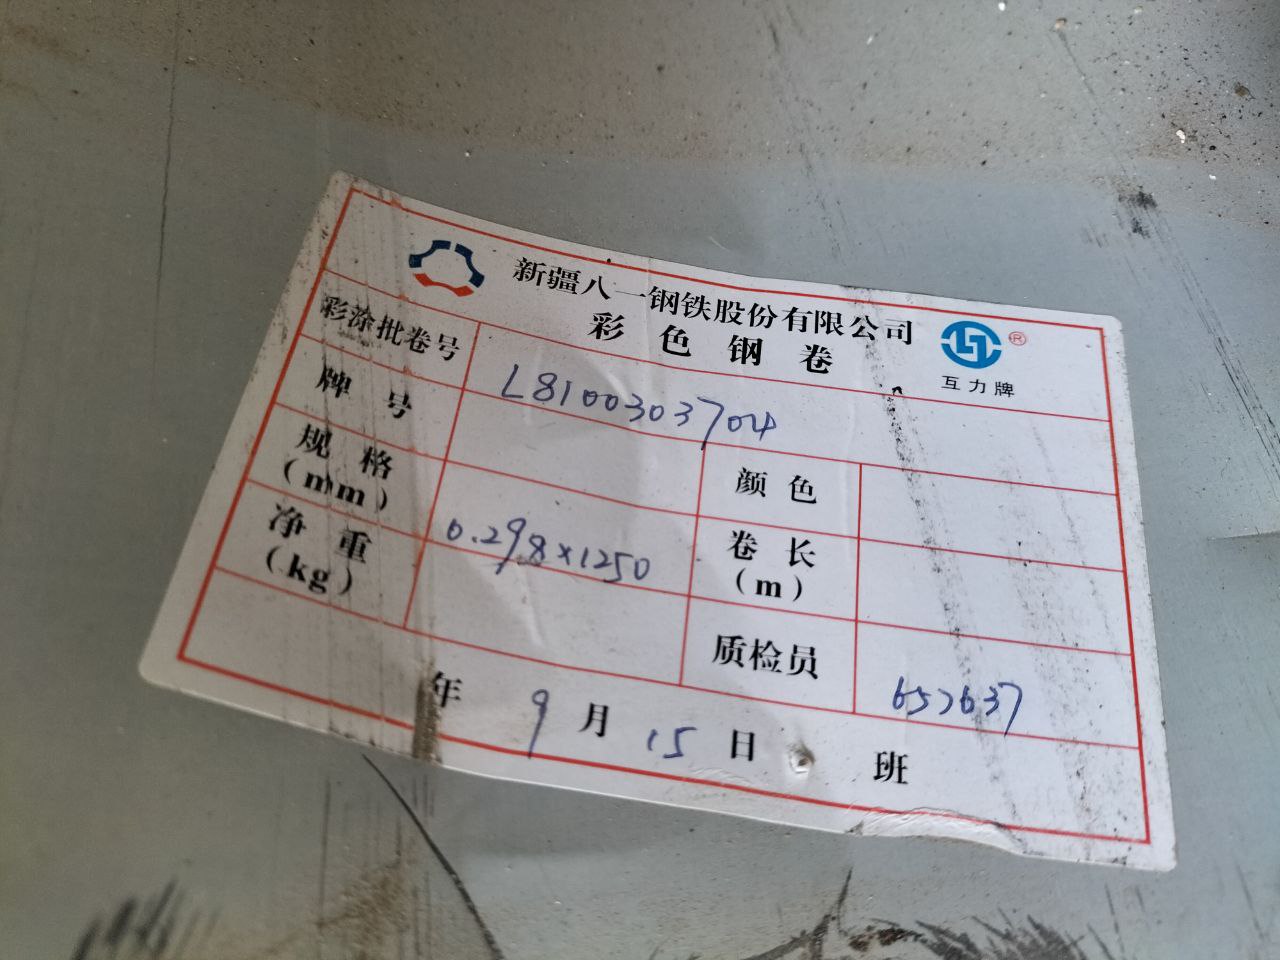 新疆八一钢铁股份有限公司
彩色钢卷
互力牌
®
彩涂批卷号 L8100303704
牌号 颜色
规格(mm) 0.298×1250 卷长(m)
净重(kg) 质检员 657637
年 9月 15日 班